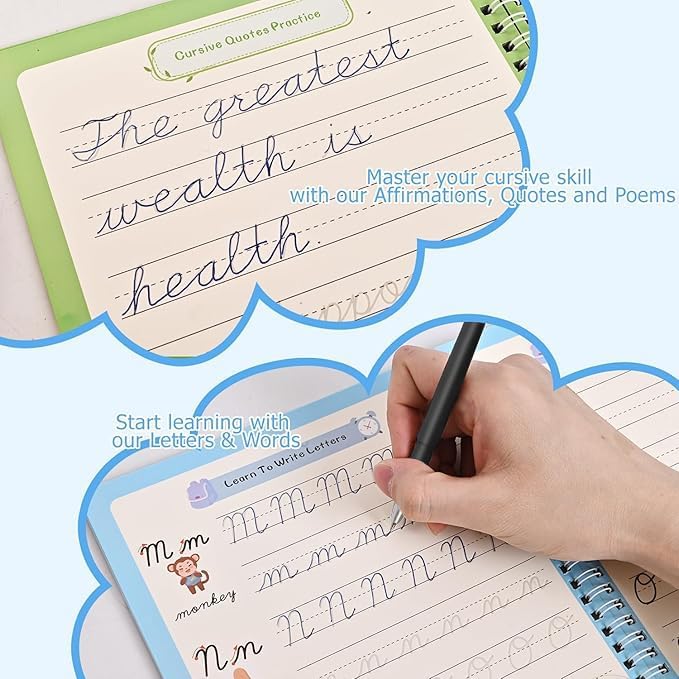 Cursive Quotes Practice
The greatest
wealth is
health.
Master your cursive skill
with our Affirmations, Quotes and Poems
Start learning with
our Letters & Words
Learn To Write Letters
M m
m m m m m
m m m m
monkey
N n
n n n n n n
n n n n n n
o o o
o